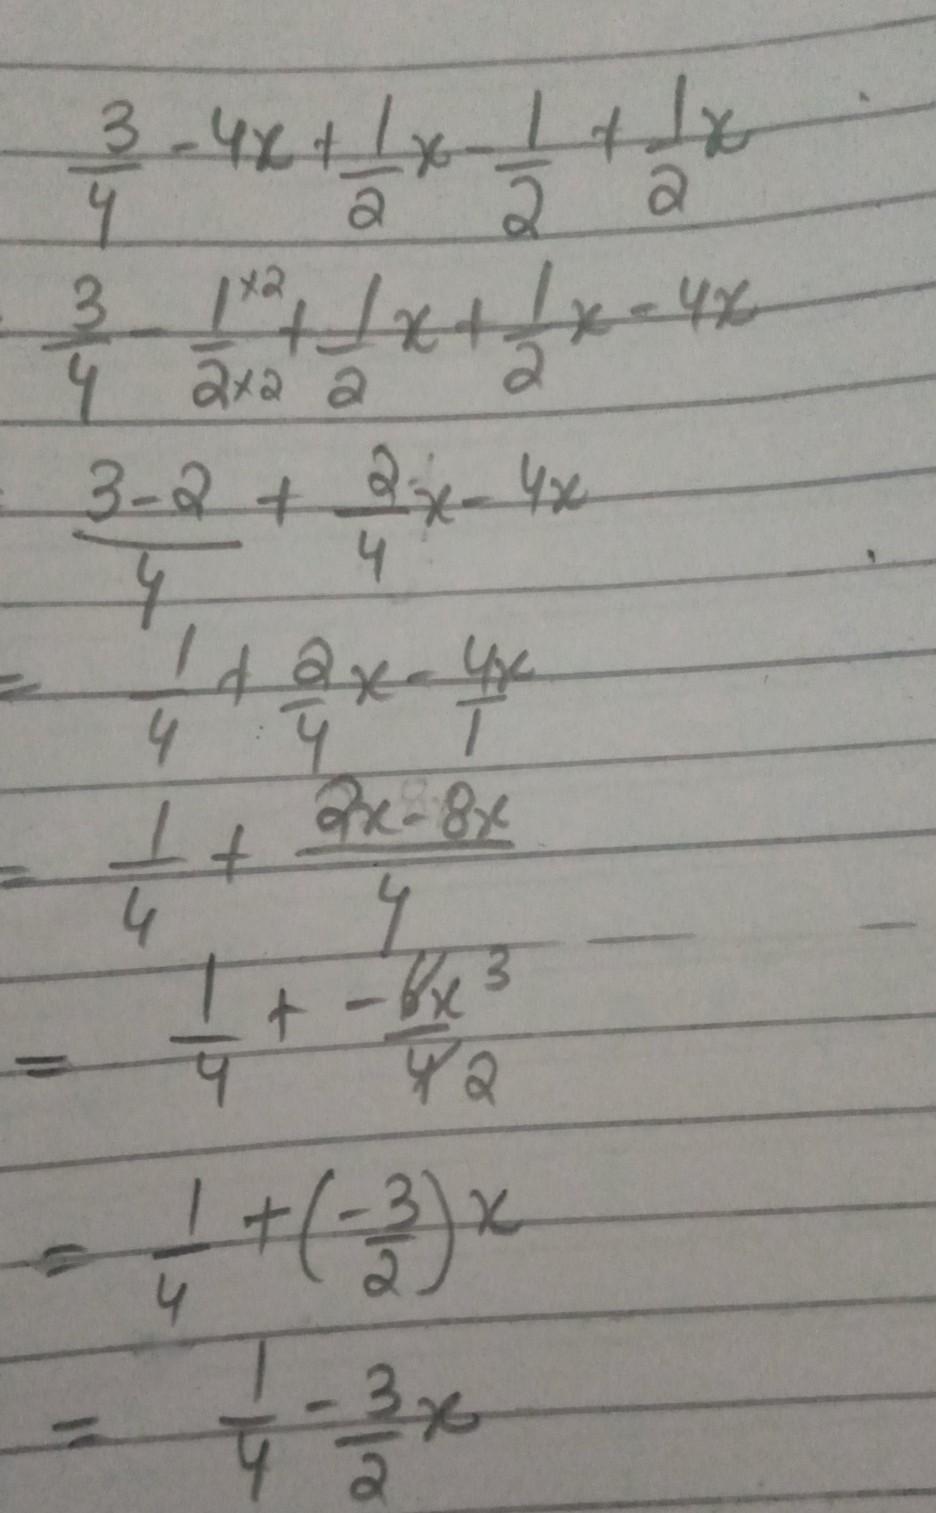 3/4 - 4x + 1/2 x - 1/2 + 1/2 x
3/4 - 1×2/2×2 + 1/2 x + 1/2 x - 4x
3-2/4 + 2/4 x - 4x
= 1/4 + 2/4 x - 4x/1
= 1/4 + 2x-8x/4
= 1/4 + -6x 3/4 2
= 1/4 + (-3/2) x
= 1/4 - 3/2 x